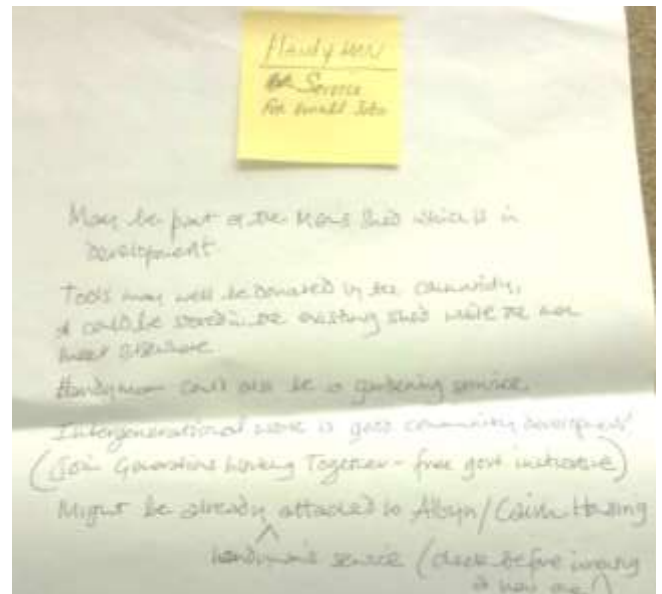 Handy Men
Service
For Small Jobs
May be part of the Mens Shed which is in
development
Tools may well be donated by the community,
& could be stored in the existing shed while the men
meet elsewhere.
Handyman could also be a gardening service.
Intergenerational work is good community development!
(Join Generations Working Together - free govt initiative)
Might be already attached to Albyn/Cairn Housing
handyman's service (check before
a new one!)